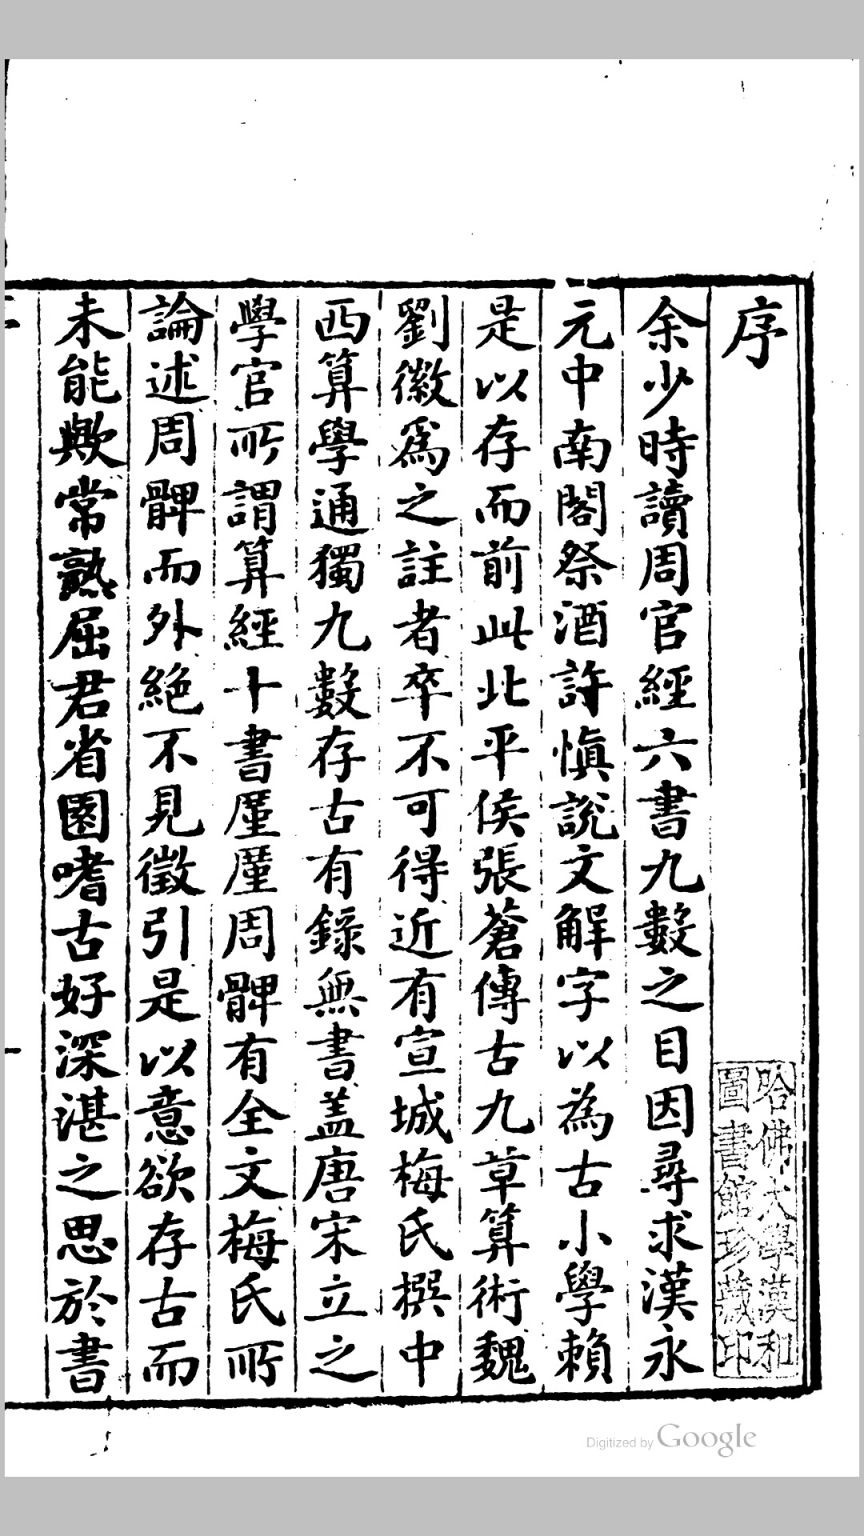 序
余少時讀周官經六書九數之目因尋求漢永
元中南閣祭酒許愼說文解字以為古小學賴
是以存而前此北平侯張蒼傳古九章算術魏
劉徽爲之註者卒不可得近有宣城梅氏撰中
西算學通獨九數存古有錄無書盖唐宋立之
學官所謂算經十書厪厪周髀有全文梅氏所
論述周髀而外絶不見徵引是以意欲存古而
未能歟常熟屈君省園嗜古好深湛之思於書
哈佛大學漢和
圖書館珍藏印
Digitized by Google